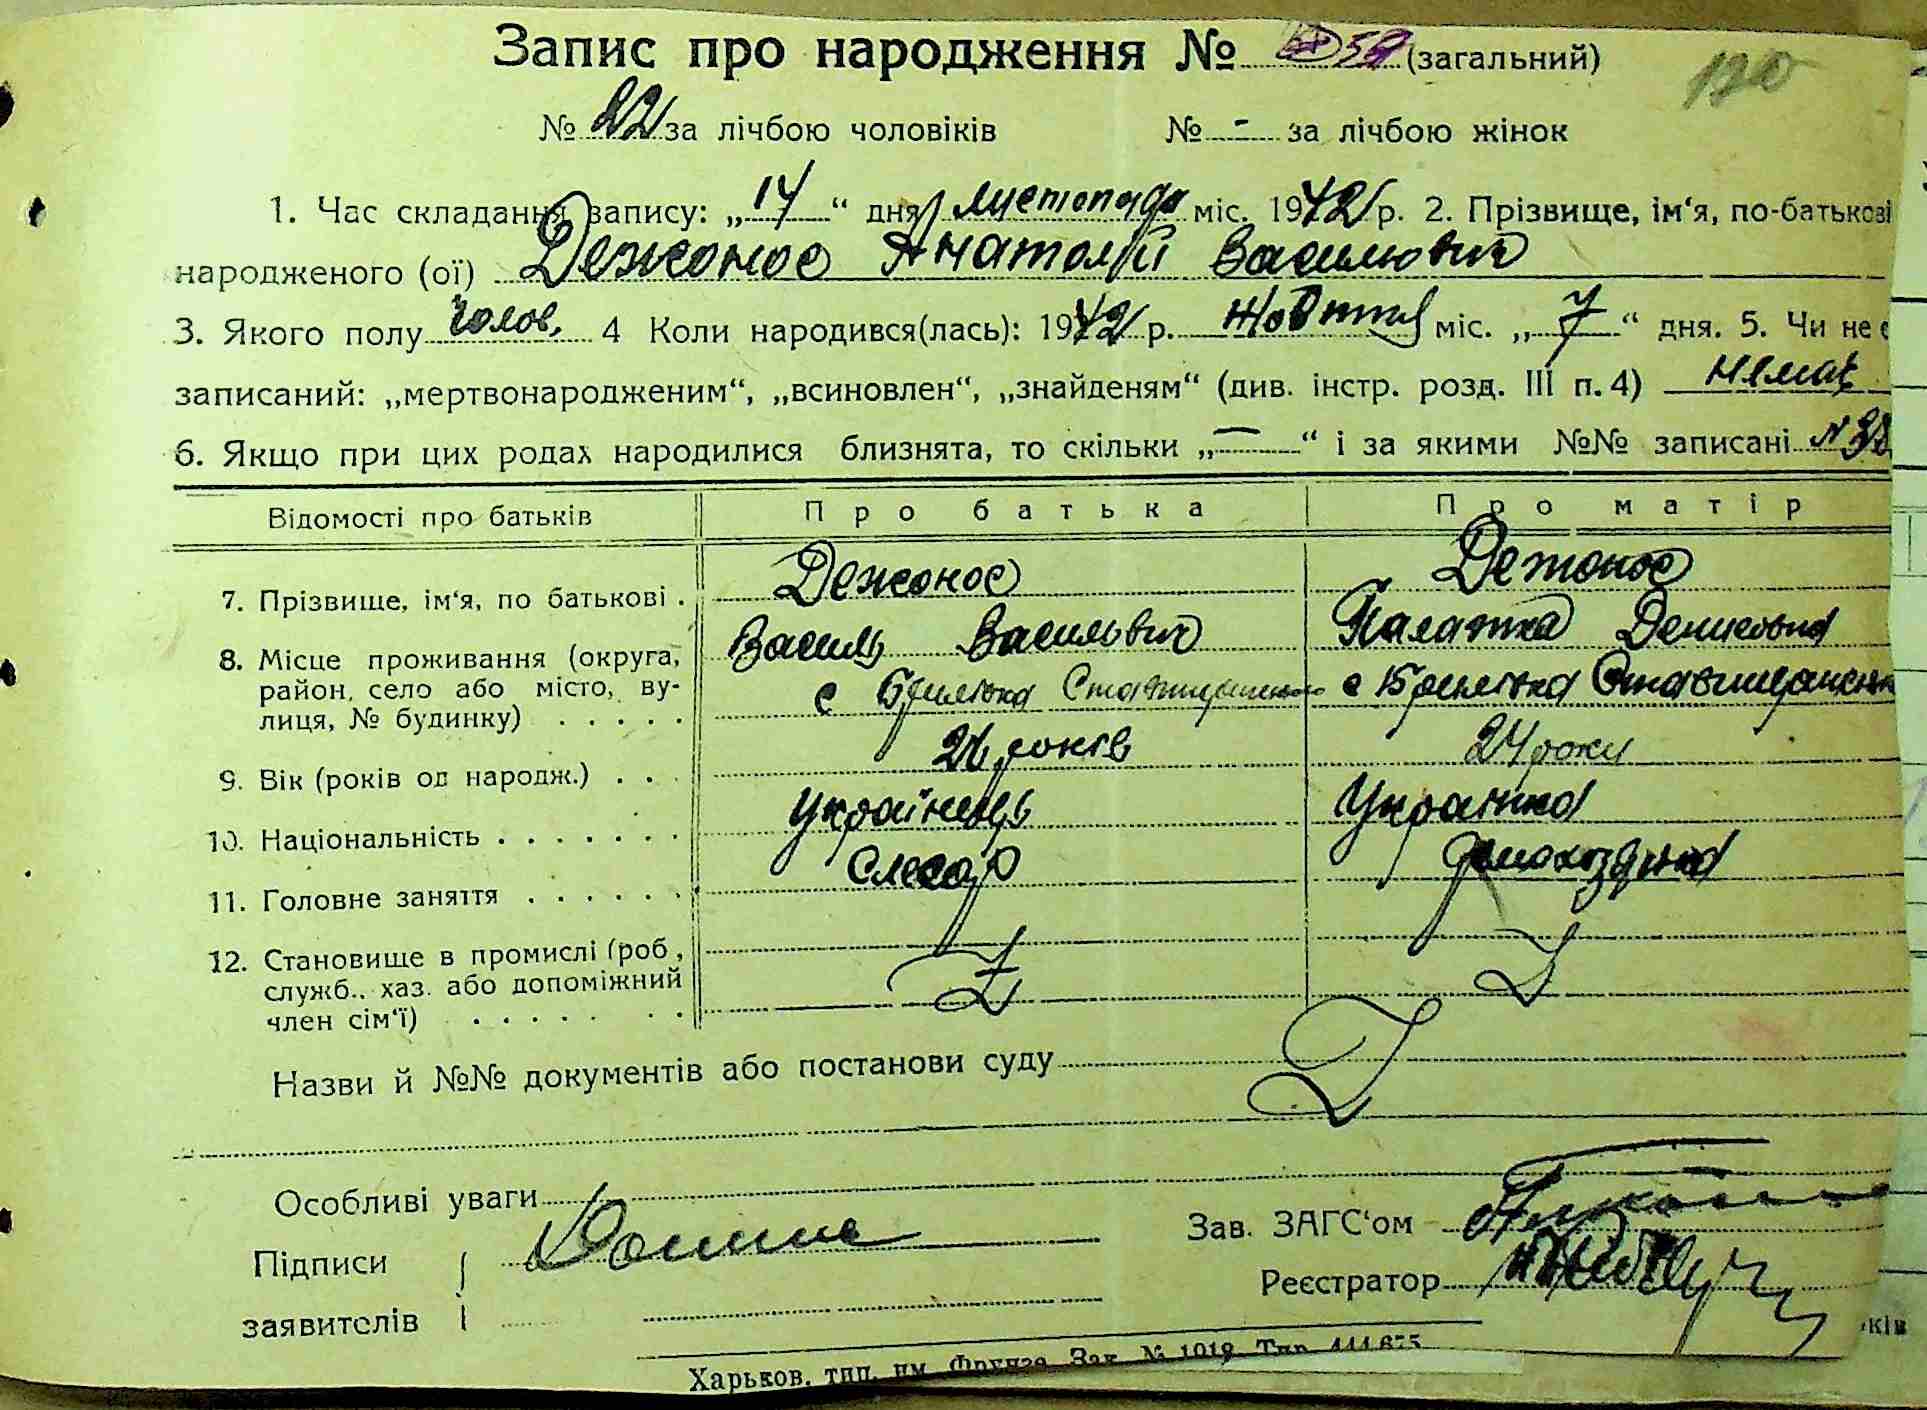 Запис про народження № 59 (загальний) 120
№ 22 за лічбою чоловіків № - за лічбою жінок
1. Час складання запису: „14“ дня листопада міс. 1942 р. 2. Прізвище, ім‘я, по-батькові
народженого (ої) Дежонос Анатолій Василювич
3. Якого полу чолов. 4 Коли народився(лась): 1942 р. жовтня міс. „7“ дня. 5. Чи не є
записаний: „мертвонародженим“, „всиновлен“, „знайденям“ (див. інстр. розд. III п. 4) немає
6. Якщо при цих родах народилися близнята, то скільки „—“ і за якими №№ записані
Відомості про батьків Про батька Про матір
7. Прізвище, ім‘я, по батькові . Дежонос Дежонос
Василь Васильвич Палажка Денисовна
8. Місце проживання (округа, район, село або місто, вулиця, № будинку) . . . . . с с
9. Вік (років од народж.) . . . років 24 роки
10. Національність . . . . . . . Українець Украінка
11. Головне заняття . . . . . . Слесар
12. Становище в промислі (роб, служб., хаз. або допоміжний член сім‘ї) . . . . . . . Z Z
Назви й №№ документів або постанови суду Z
Особливі уваги
Зав. ЗАГС‘ом
Підписи
Реєстратор
заявителів
Харьков. тип. им. Фрунзе. Зак. № 1019. Тир. 444.675
ків